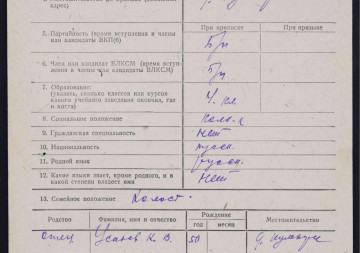 адрес)
При приписке
При призыве
5. Партийность (время вступления в члены
или кандидаты ВКП(б)
Б/п
6. Член или кандидат ВЛКСМ (время вступ-
ления в члены или кандидаты ВЛКСМ)
Б/п
7. Образование:
(указать, сколько классов или курсов
какого учебного заведения окончил, где
и когда)
4 кл
8. Социальное положение
9. Гражданская специальность
нет
10. Национальность
русск.
11. Родной язык
русск.
12. Какие языки знает, кроме родного, и в
какой степени владеет ими
Нет
13. Семейное положение Холост.
Родство
Фамилия, имя и отчество
Рождение
год
месяц
Местожительство
отец
К. В.
50